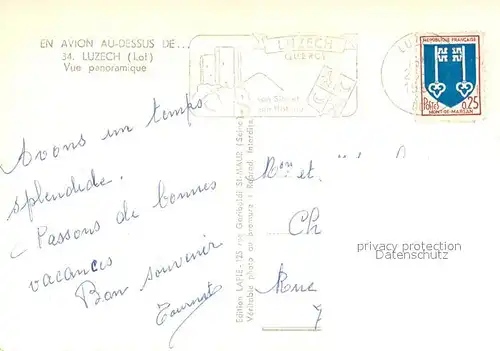 EN AVION AU-DESSUS DE...
34. LUZECH (Lot)
Vue panoramique
LUZECH
QUERCY
son Site et
RÉPUBLIQUE FRANÇAISE
Postes 0,25
MONT-DE-MARSAN
Avons un temps
splendide.
Passons de bonnes
vacances
Bon souvenir
Tournet
Edition LAPIE - 125 rue Garibaldi St-MAUR (Seine)
Véritable photo au bromure - Reprod. interdite
et
Ch
privacy protection
Datenschutz
Rue
7